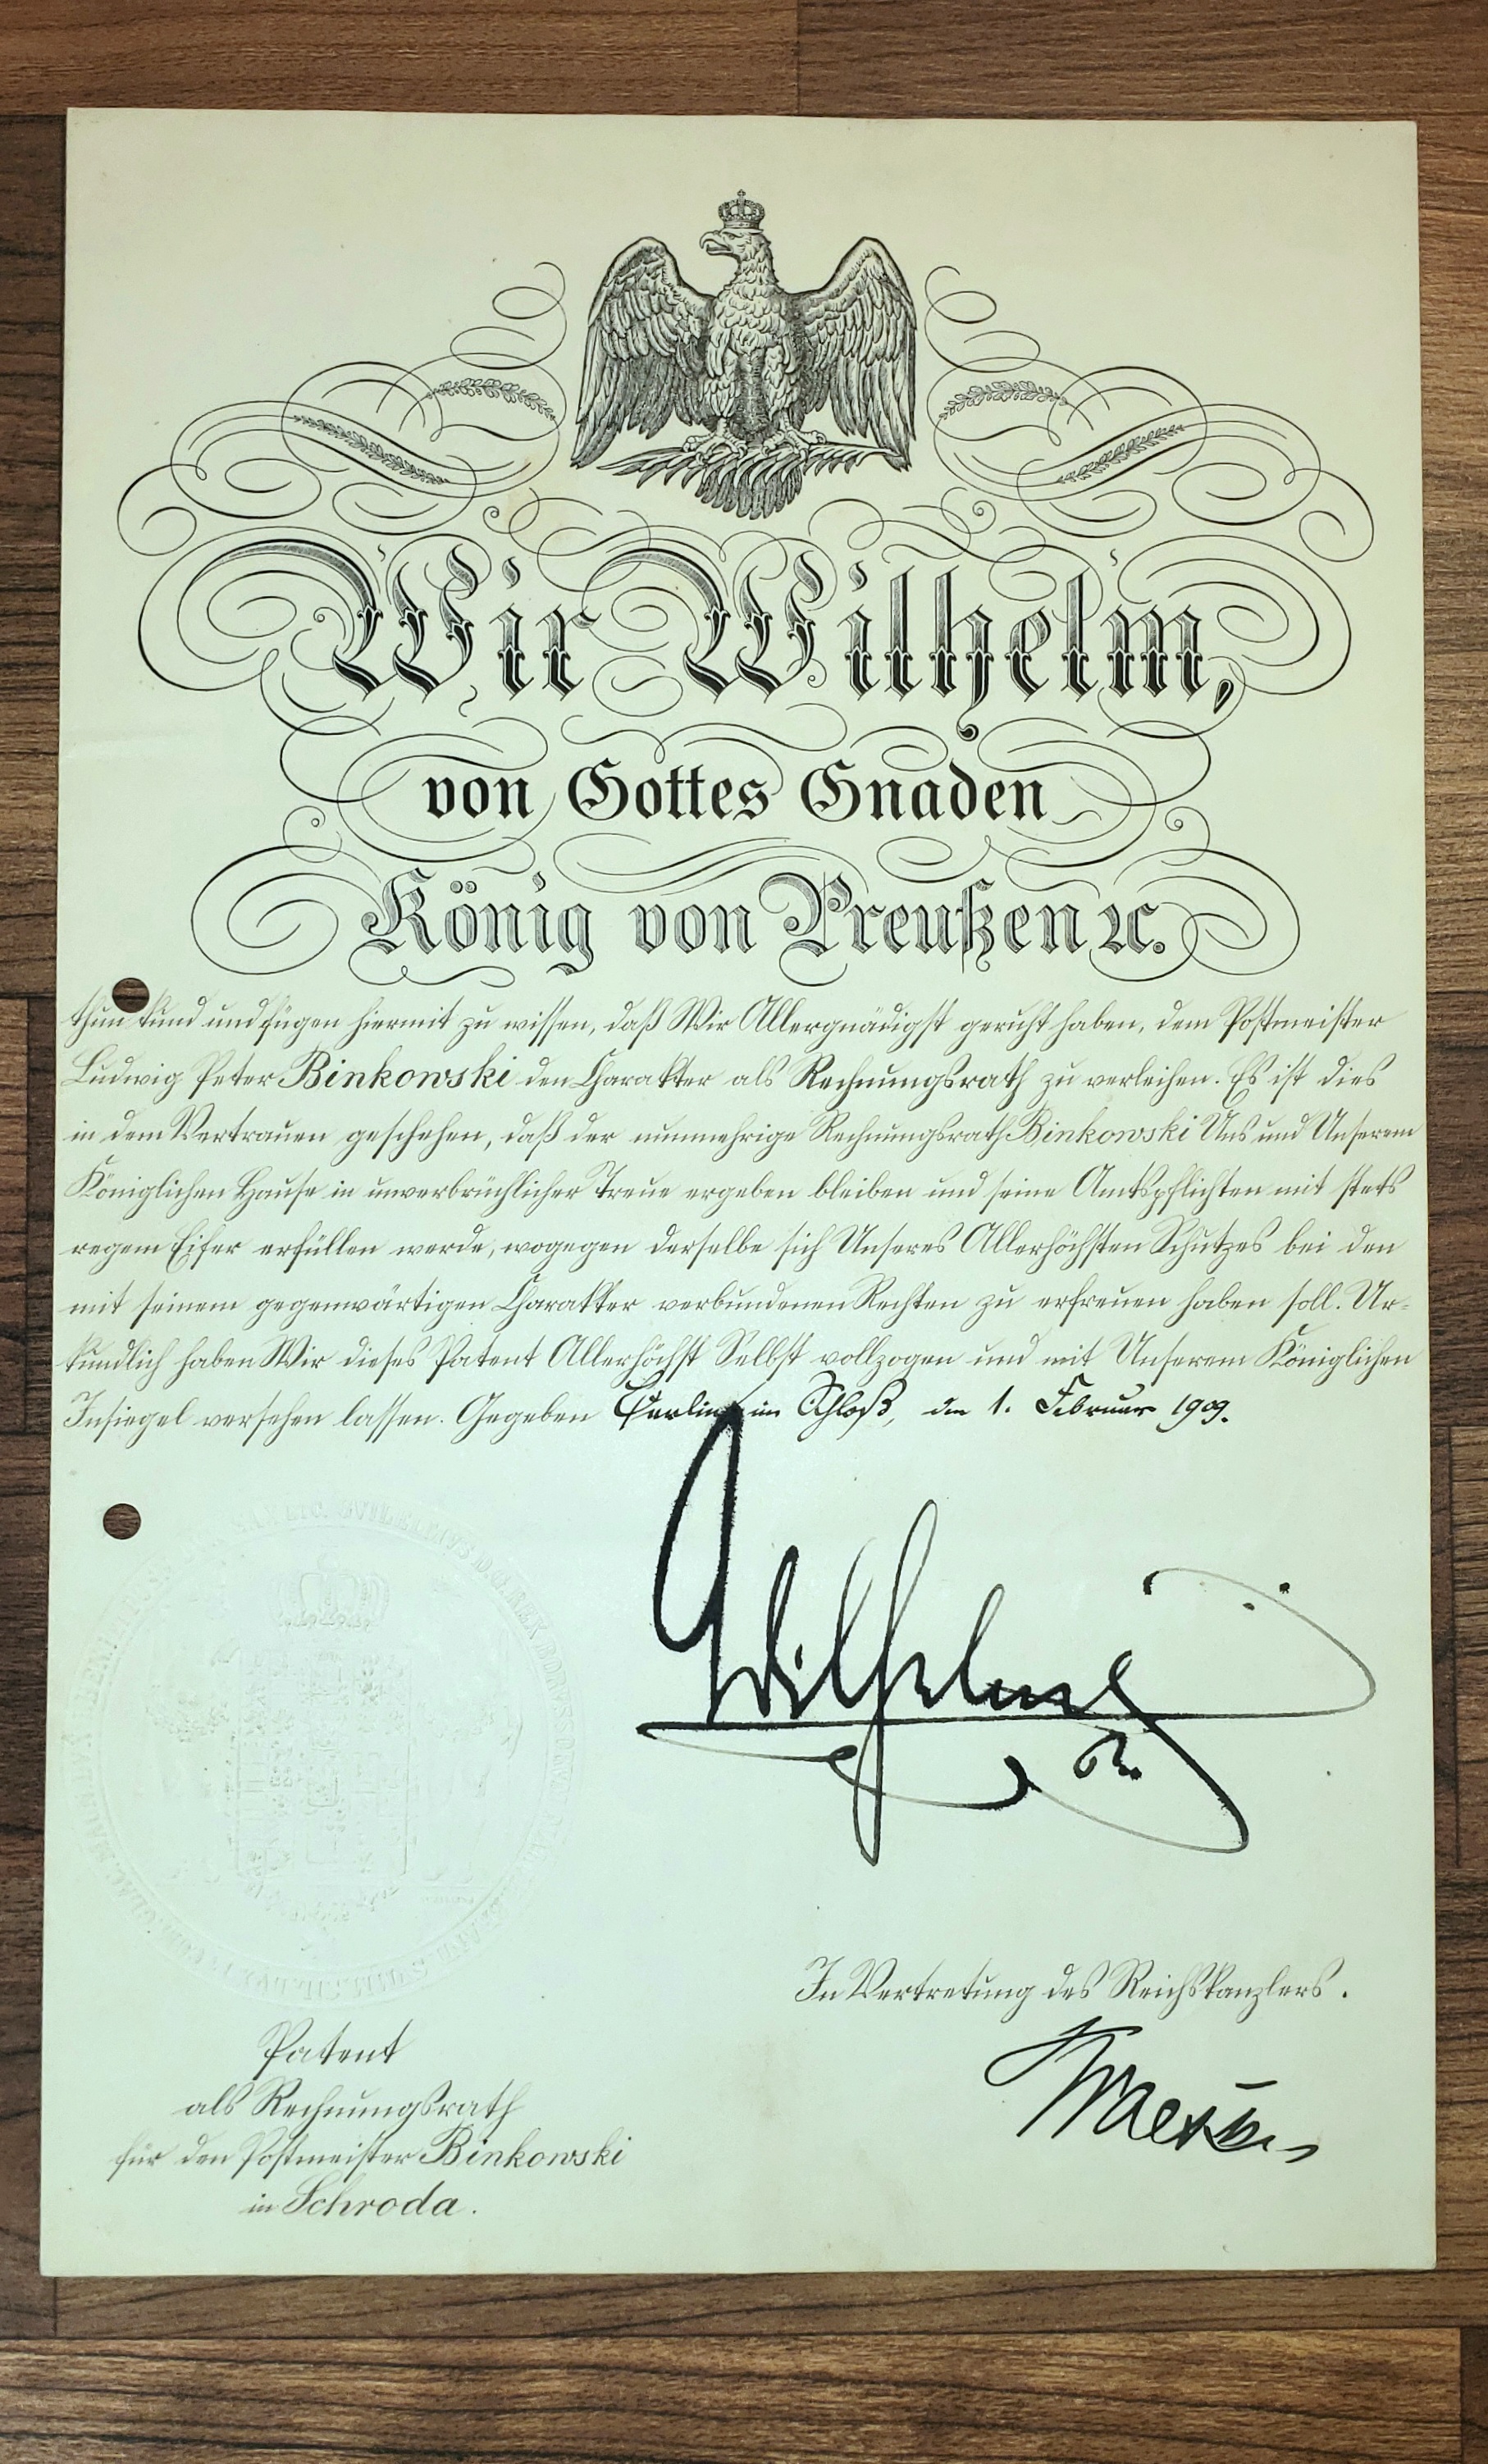 Wir Wilhelm,
von Gottes Gnaden
König von Preußen ꝛc.
thun kund und fügen hiermit zu wissen, daß Wir Allergnädigst geruht haben, dem Postmeister
Ludwig Peter Binkowski den Charakter als Rechnungsrath zu verleihen. Es ist dies
in dem Vertrauen geschehen, daß der nunmehrige Rechnungsrath Binkowski Uns und Unserem
Königlichen Hause in unverbrüchlicher Treue ergeben bleiben und seine Amtspflichten mit stets
regem Eifer erfüllen werde, wogegen derselbe sich Unseres Allerhöchsten Schutzes bei den
mit seinem gegenwärtigen Charakter verbundenen Rechten zu erfreuen haben soll. Ur-
kundlich haben Wir dieses Patent Allerhöchst Selbst vollzogen und mit Unserem Königlichen
Insiegel versehen lassen. Gegeben Berlin im Schloß, den 1. Februar 1909.
Wilhelm
In Vertretung des Reichskanzlers.
Patent
als Rechnungsrath
für den Postmeister Binkowski
in Schroda.